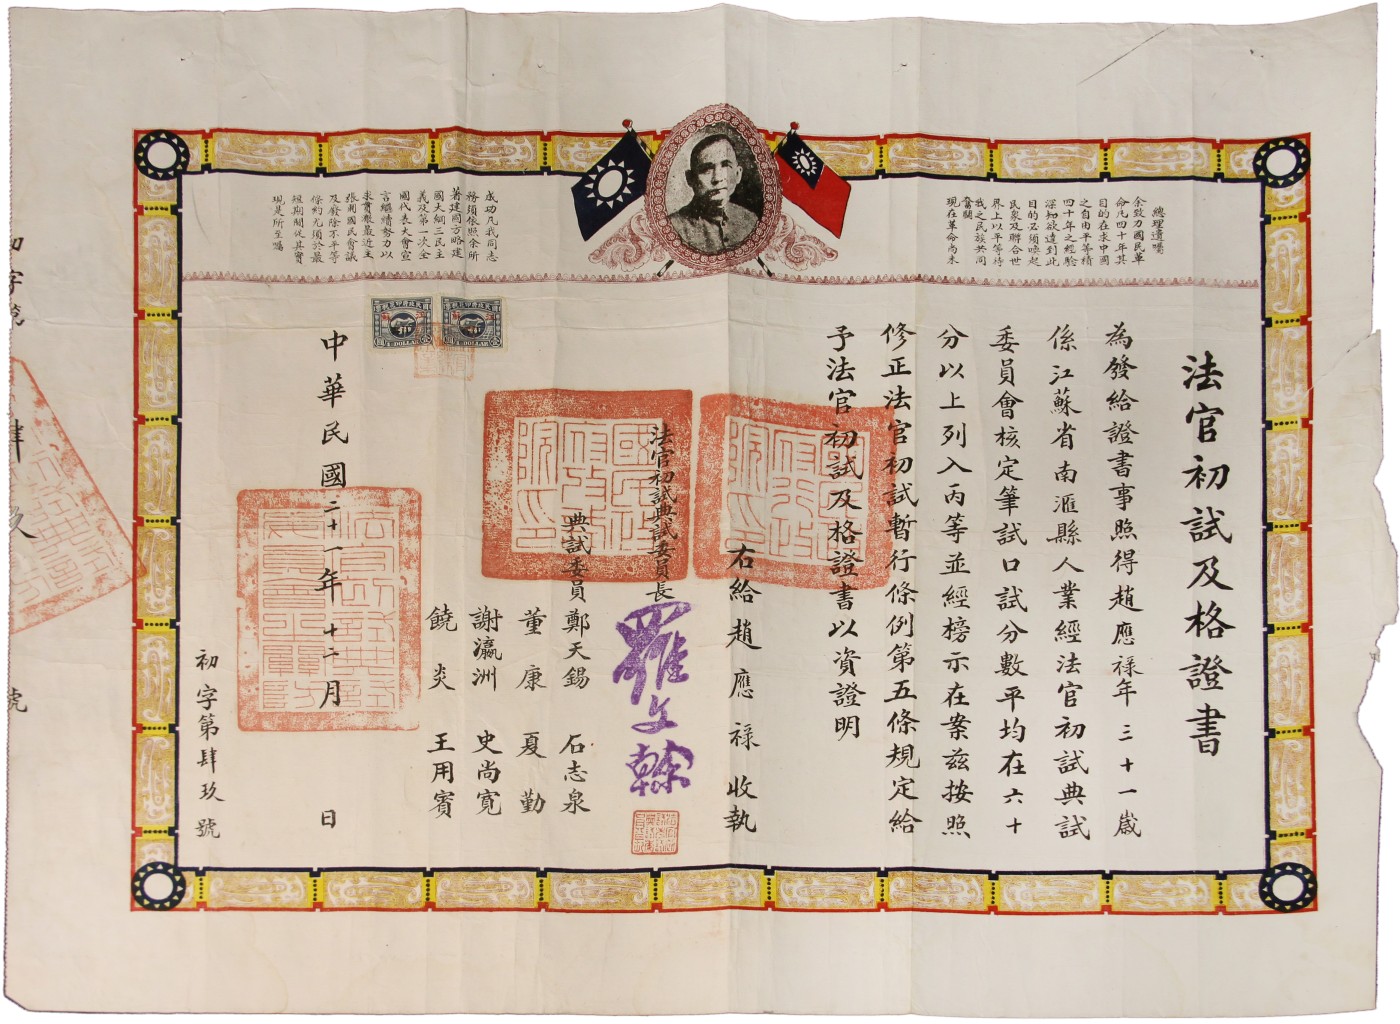 總理遺囑
余致力國民革
命凡四十年其
目的在求中國
之自由平等積
四十年之經驗
深知欲達到此
目的必須喚起
民衆及聯合世
界上以平等待
我之民族共同
奮鬭
現在革命尚未
成功凡我同志
務須依照余所
著建國方略建
國大綱三民主
義及第一次全
國代表大會宣
言繼續努力以
求貫徹最近主
張開國民會議
及廢除不平等
條約尤須於最
短期間促其實
現是所至囑
法官初試及格證書
為發給證書事照得趙應祿年三十一歲
係江蘇省南滙縣人業經法官初試典試
委員會核定筆試口試分數平均在六十
分以上列入丙等並經榜示在案茲按照
修正法官初試暫行條例第五條規定給
予法官初試及格證書以資證明
右給趙應祿收執
法官初試典試委員長
羅文榦
典試委員
鄭天錫 石志泉
董康 夏勤
謝瀛洲 史尚寬
饒炎 王用賓
中華民國二十一年十二月 日
初字第肆玖號